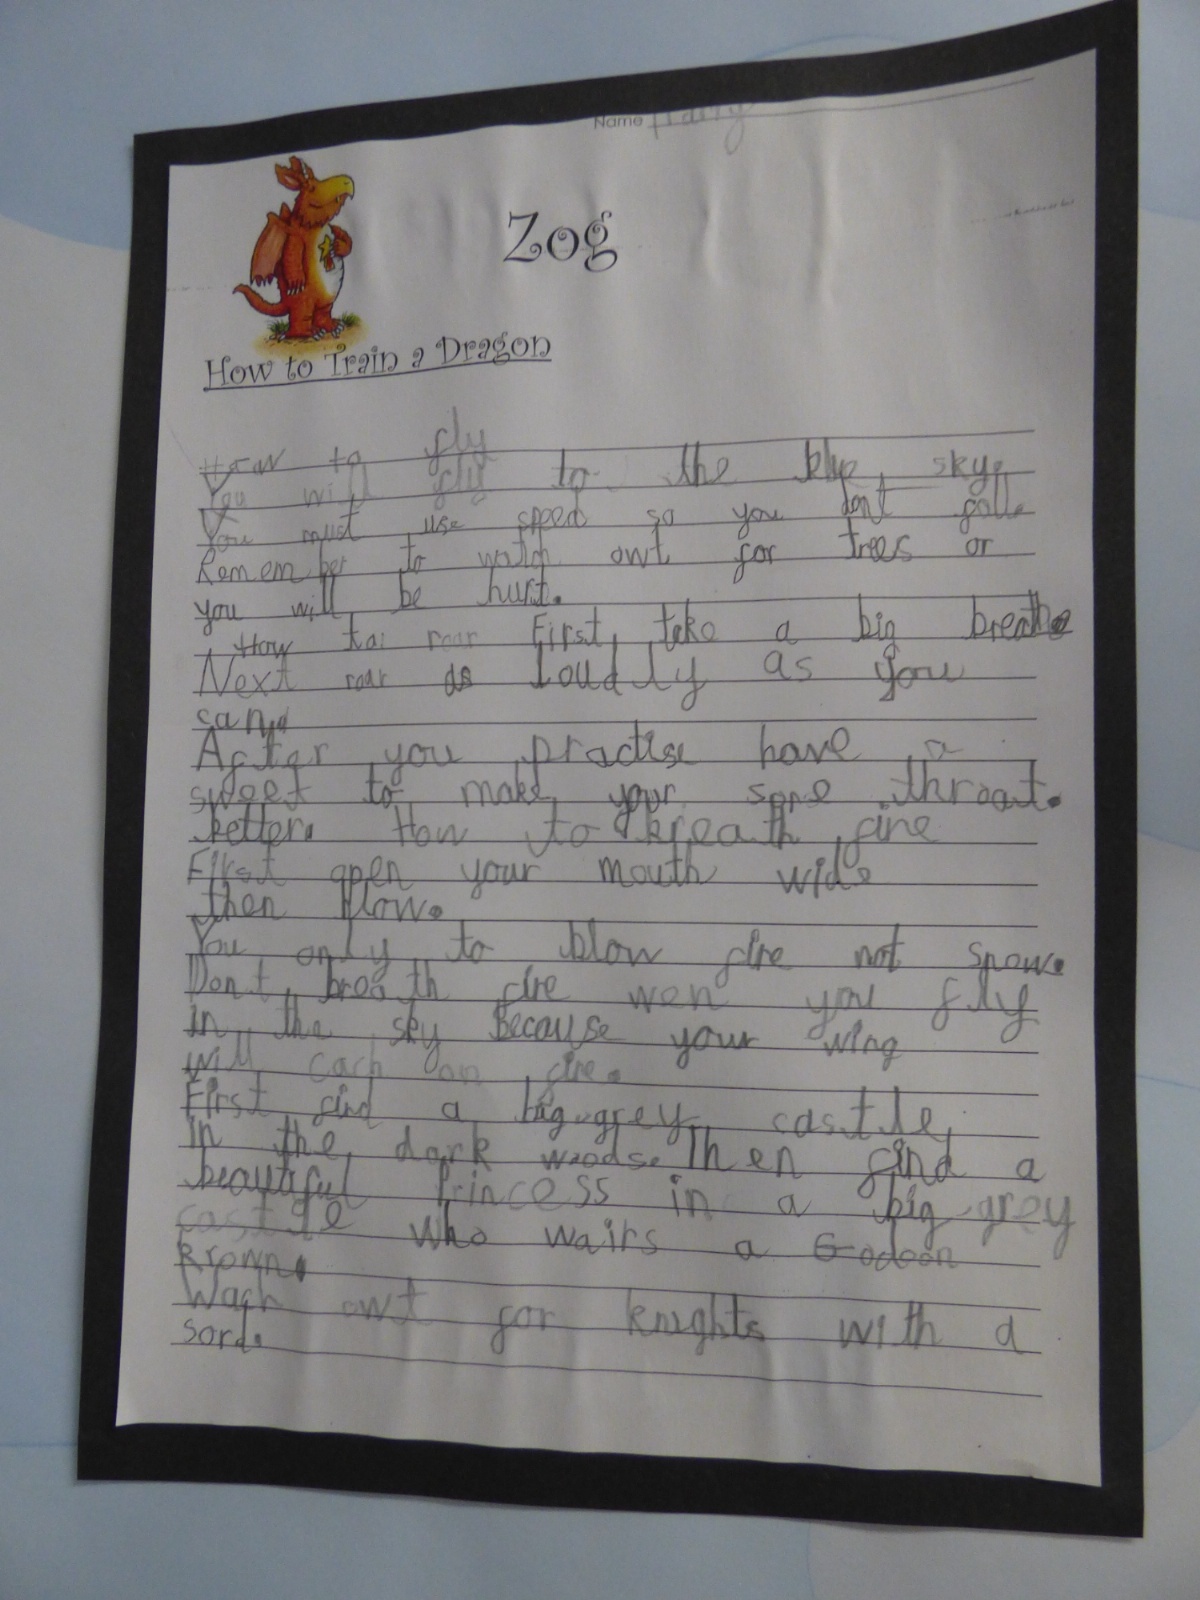 Name Harry
Zog
How to Train a Dragon
How to fly
You will fly to the blue sky.
You must use speed so you dont fall.
Remember to watch owt for trees or
you will be hurt.
How to roar First, take a big breathe
Next roar as loudly as you
can.
After you practise have a
sweet to make your sore throat.
better. How to breath fire
First open your mouth wide
then blow.
You only to blow fire not snow.
Dont breath fire wen you fly
in the sky Because your wing
will cach on fire.
First find a big grey castle,
in the dark woods. Then find a
beautiful Princess in a big grey
castle who wairs a
krown.
Wach owt for knights with a
sord.